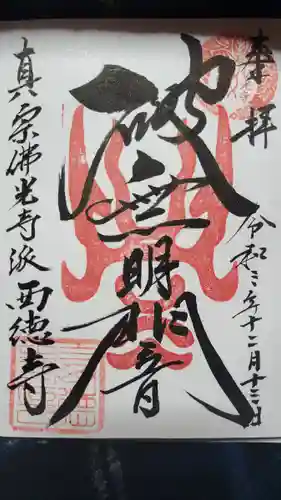 奉拝
令和三年十二月十二日
破無明闇
真宗佛光寺派 西徳寺